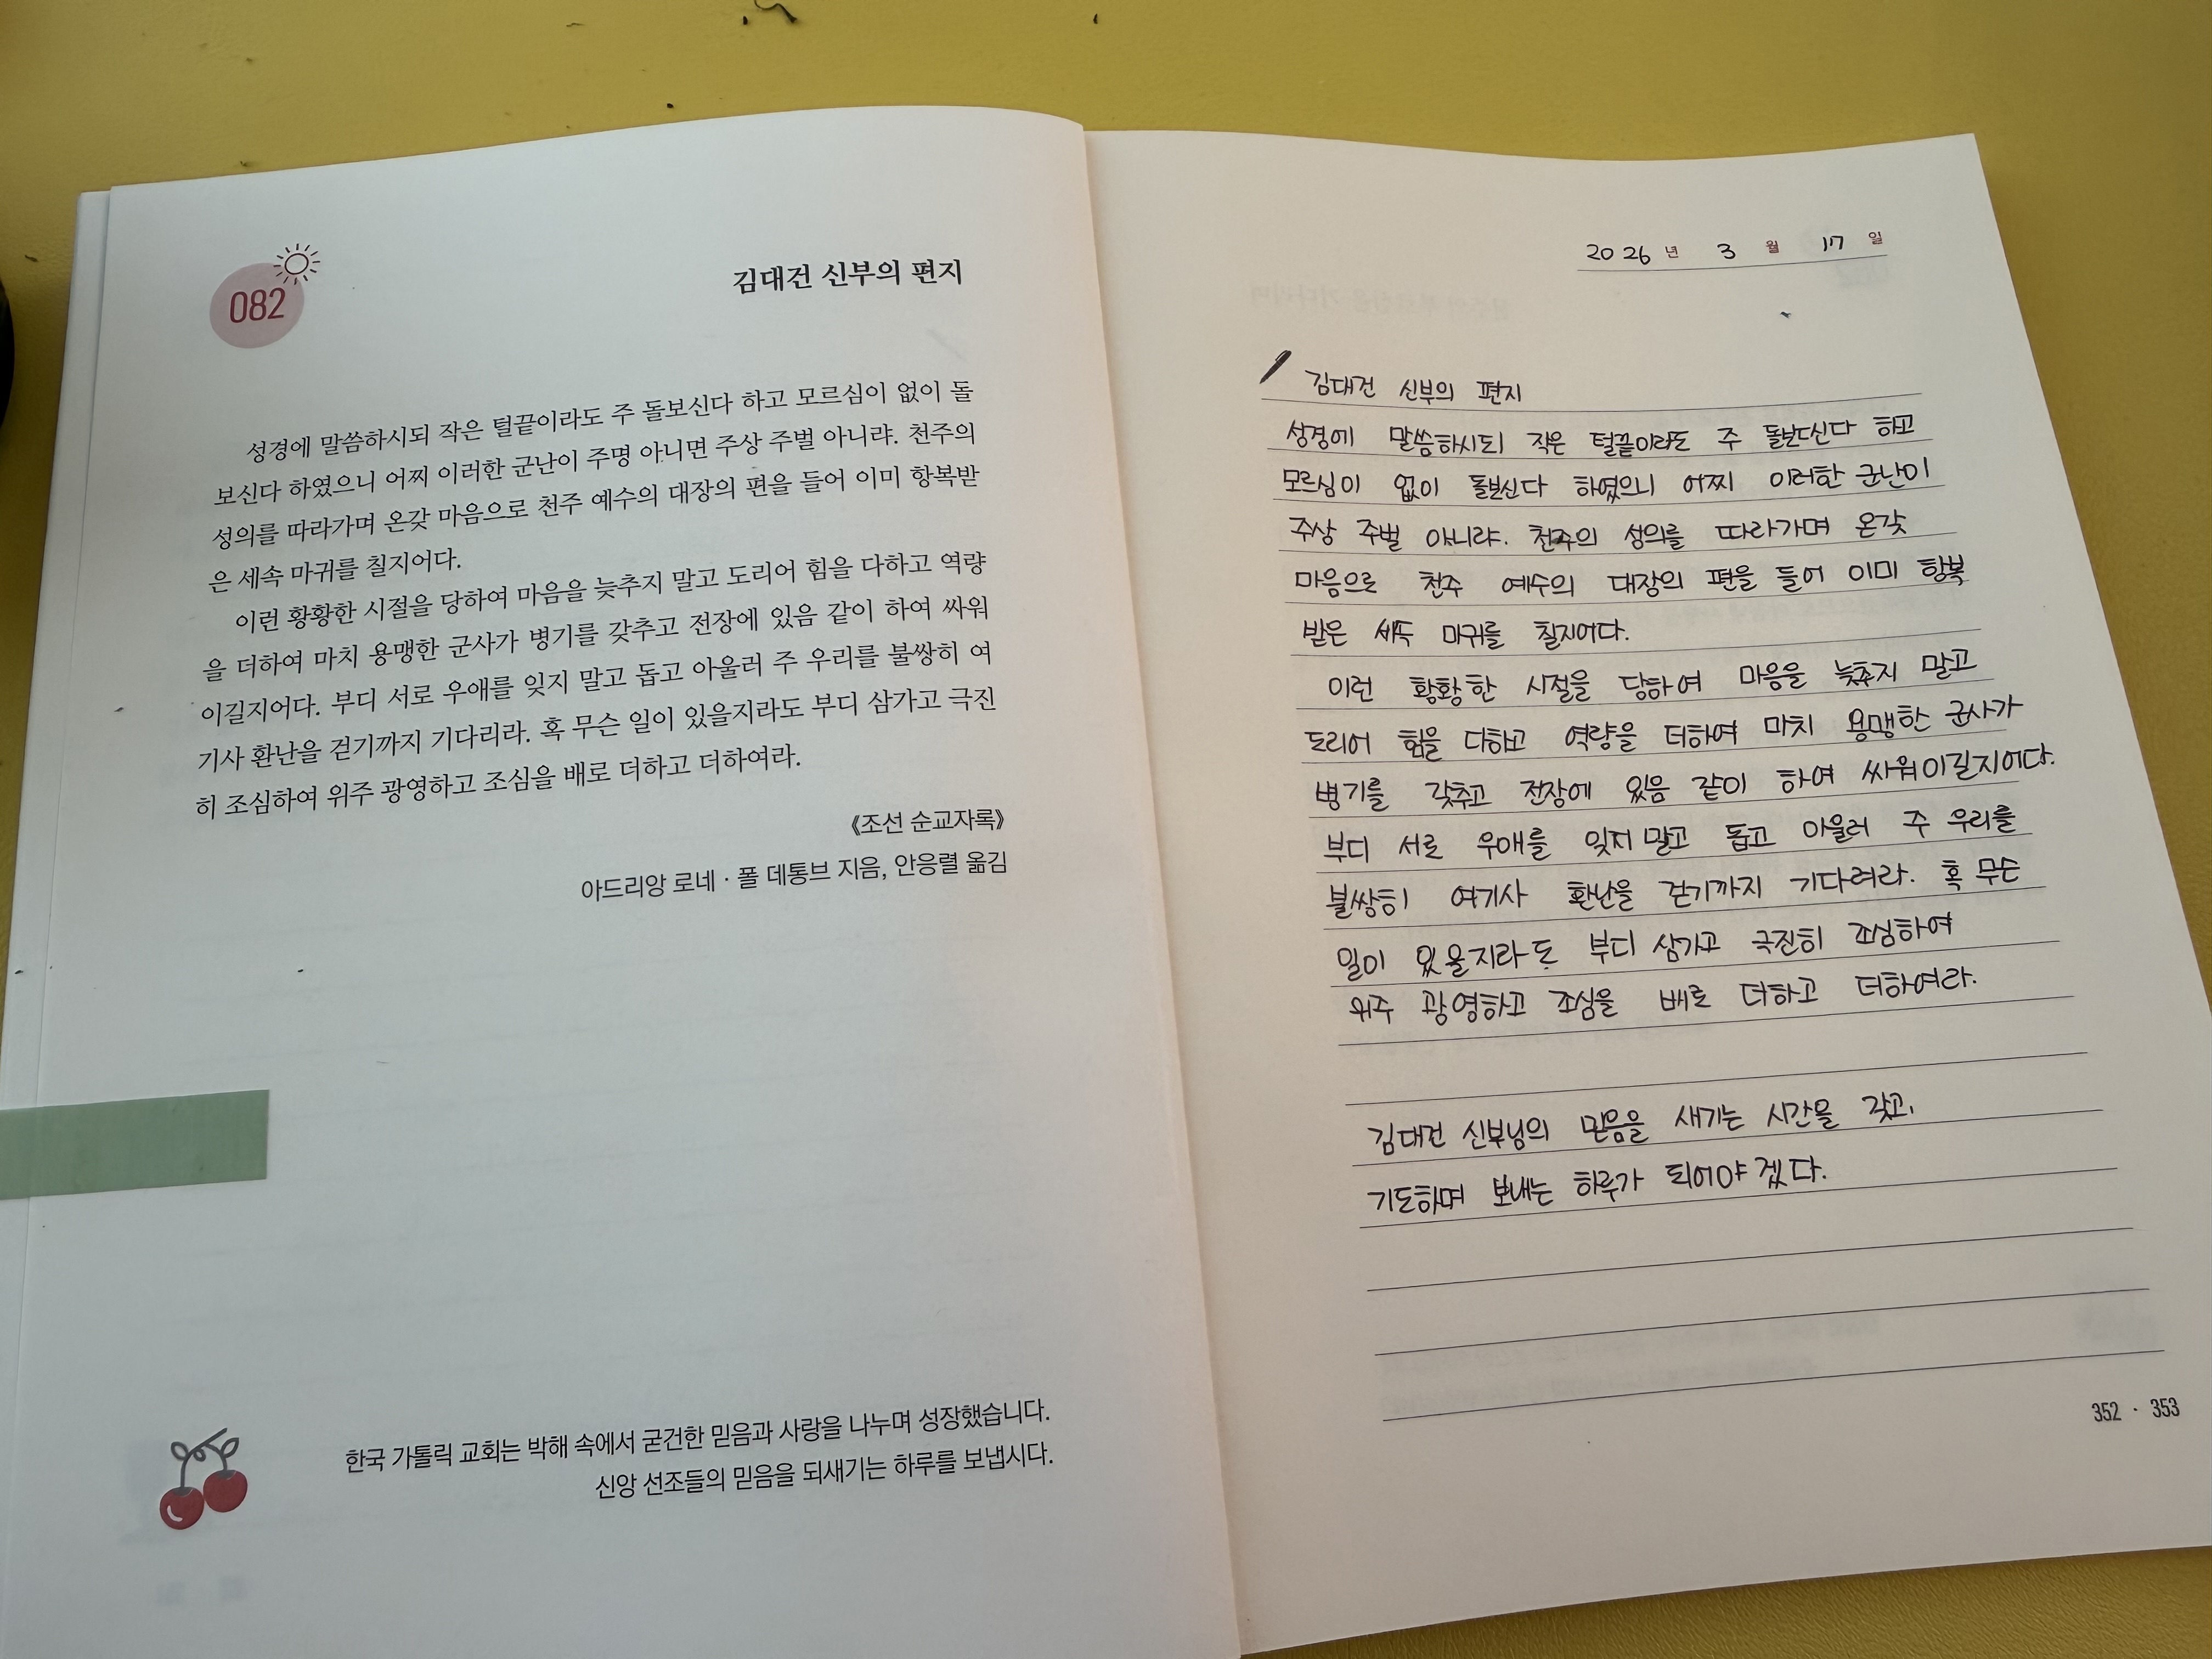 082
김대건 신부의 편지
성경에 말씀하시되 작은 털끝이라도 주 돌보신다 하고 모르심이 없이 돌
보신다 하였으니 어찌 이러한 군난이 주명 아니면 주상 주벌 아니랴. 천주의
성의를 따라가며 온갖 마음으로 천주 예수의 대장의 편을 들어 이미 항복받
은 세속 마귀를 칠지어다.
이런 황황한 시절을 당하여 마음을 늦추지 말고 도리어 힘을 다하고 역량
을 더하여 마치 용맹한 군사가 병기를 갖추고 전장에 있음 같이 하여 싸워
이길지어다. 부디 서로 우애를 잊지 말고 돕고 아울러 주 우리를 불쌍히 여
기사 환난을 걷기까지 기다리라. 혹 무슨 일이 있을지라도 부디 삼가고 극진
히 조심하여 위주 광영하고 조심을 배로 더하고 더하여라.
《조선 순교자록》
아드리앙 로네 · 폴 데통브 지음, 안응렬 옮김
한국 가톨릭 교회는 박해 속에서 굳건한 믿음과 사랑을 나누며 성장했습니다.
신앙 선조들의 믿음을 되새기는 하루를 보냅시다.
2026 년 3 월 17 일
김대건 신부의 편지
성경에 말씀하시되 작은 털끝이라도 주 돌보신다 하고
모르심이 없이 돌보신다 하였으니 어찌 이러한 군난이
주상 주벌 아니랴. 천주의 성의를 따라가며 온갖
마음으로 천주 예수의 대장의 편을 들어 이미 항복
받은 세속 마귀를 칠지어다.
이런 황황한 시절을 당하여 마음을 늦추지 말고
도리어 힘을 다하고 역량을 더하여 마치 용맹한 군사가
병기를 갖추고 전장에 있음 같이 하여 싸워이길지어다.
부디 서로 우애를 잊지 말고 돕고 아울러 주 우리를
불쌍히 여기사 환난을 걷기까지 기다려라. 혹 무슨
일이 있을지라도 부디 삼가고 극진히 조심하여
위주 광영하고 조심을 배로 더하고 더하여라.
김대건 신부님의 믿음을 새기는 시간을 갖고,
기도하며 보내는 하루가 되어야겠다.
352 · 353